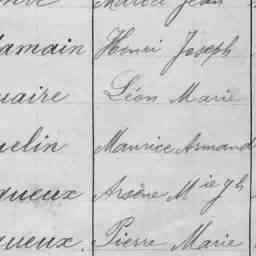 Marcel Jean
Hamain Henri Joseph
uaire Léon Marie
uelin Maurice Armand
queux Arsène Mie Jh
queux. Pierre Marie